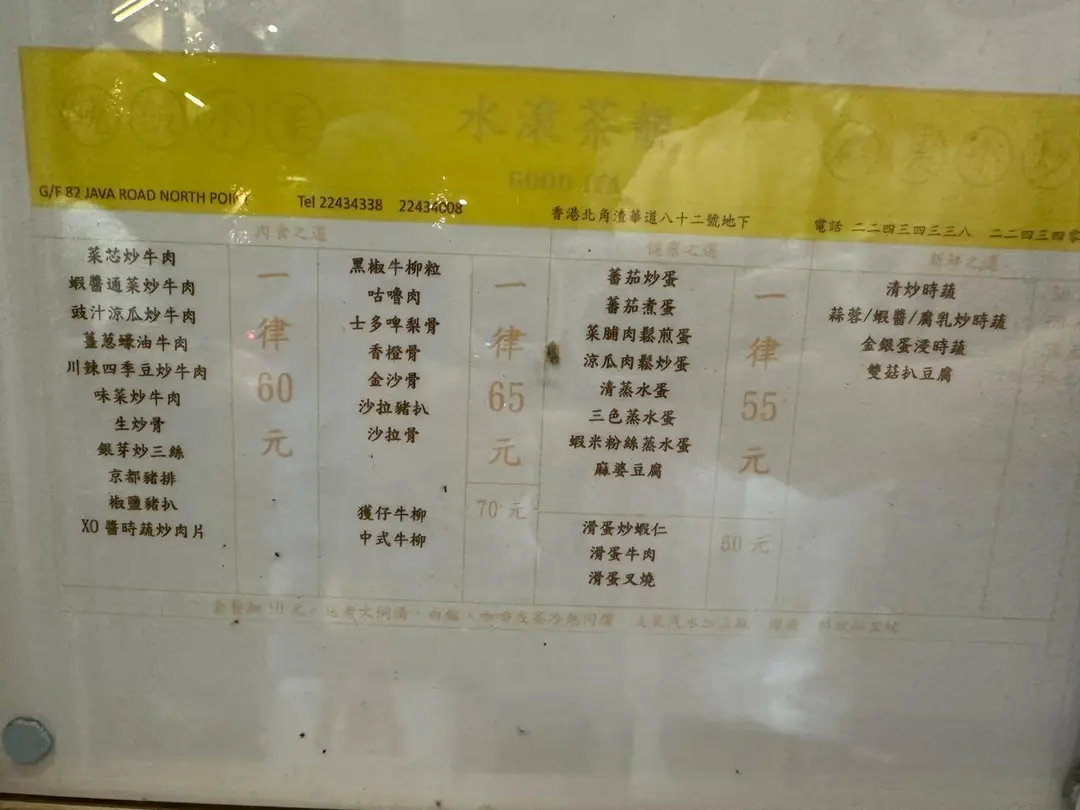 水滾茶靚
GOOD
G/F 82 JAVA ROAD NORTH POINT
Tel 22434338 22434008
香港北角渣華道八十二號地下
電話 二二四三四三三八 二二四三四零
肉食之選
菜芯炒牛肉
蝦醬通菜炒牛肉
豉汁涼瓜炒牛肉
薑蔥蠔油牛肉
川辣四季豆炒牛肉
味菜炒牛肉
生炒骨
銀芽炒三絲
京都豬排
椒鹽豬扒
XO醬時蔬炒肉片
一律60元
黑椒牛柳粒
咕嚕肉
士多啤梨骨
香橙骨
金沙骨
沙拉豬扒
沙拉骨
一律65元
獲仔牛柳
中式牛柳
70元
健康之選
蕃茄炒蛋
蕃茄煮蛋
菜脯肉鬆煎蛋
涼瓜肉鬆炒蛋
清蒸水蛋
三色蒸水蛋
蝦米粉絲蒸水蛋
麻婆豆腐
一律55元
滑蛋炒蝦仁
滑蛋牛肉
滑蛋叉燒
60元
清炒時蔬
蒜蓉/蝦醬/腐乳炒時蔬
金銀蛋浸時蔬
雙菇扒豆腐